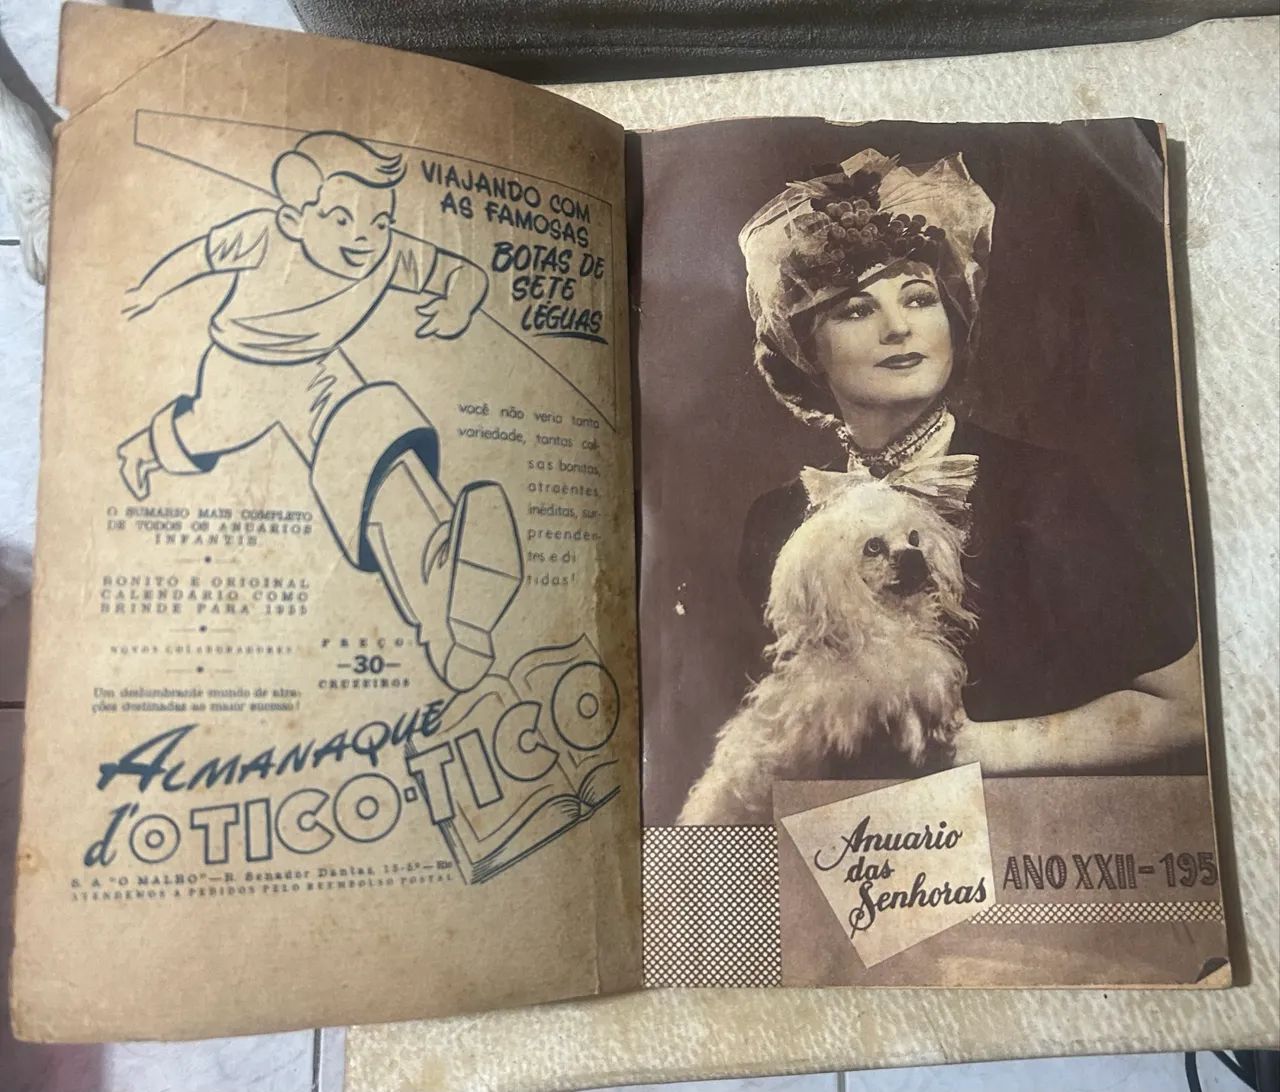 VIAJANDO COM
AS FAMOSAS
BOTAS DE
SETE
LÉGUAS
você não veria tanta
variedade, tantas coi-
sas bonitas,
atraentes,
inéditas, sur-
preenden-
tes e di
tidas!
O SUMARIO MAIS COMPLETO
DE TODOS OS ANUARIOS
INFANTIS
BONITO E ORIGINAL
CALENDARIO COMO
BRINDE PARA 1955
NOVOS COLABORADORES
PREÇO:
—30—
CRUZEIROS
Um deslumbrante mundo de atra-
ções destinadas ao maior sucesso!
ALMANAQUE
d'O TICO-TICO
S. A "O MALHO" — R. Senador Dantas, 15-5º — Rio
ATENDEMOS A PEDIDOS PELO REEMBOLSO POSTAL
Anuario
das
Senhoras
ANO XXII - 195